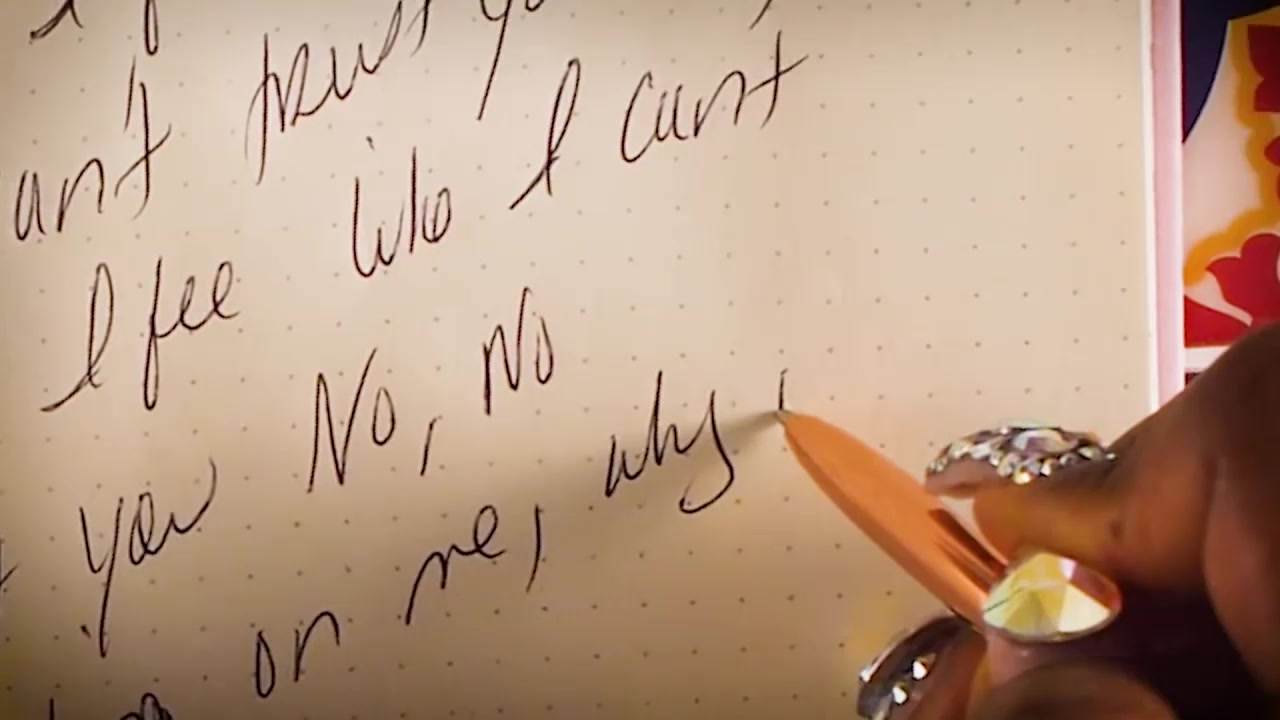 ant trust
I fee like I cant
you No, No
on me, why